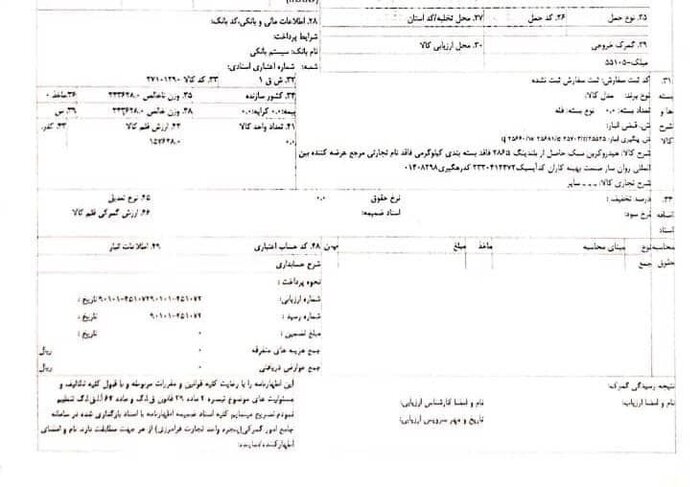 ۲۵. نوع حمل
۲۶. کد حمل
۲۷. محل تخلیه/کد استان
۲۸. اطلاعات مالی و بانکی،کد بانک:
شرایط پرداخت:
۲۹. گمرک خروجی
۳۰. محل ارزیابی کالا
نام بانک: سیستم بانکی
شعبه:
شماره اعتباری اسنادی:
۳۱.
بسته
ها و
شرح
کالا
کد ثبت سفارش: ثبت سفارش ثبت نشده
نوع برند: مدل کالا:
تعداد بسته: ۰.۰ نوع بسته: فله
ش. قبض انبار:
ش. پیگیری انبار:
شرح کالا: هیدروکربن سبک حاصل از بلندینگ ۲۸۶۵ فاقد بسته بندی کیلوگرمی فاقد نام تجارتی مرجع عرضه کننده بین
المللی روان ساز صنعت بهینه کاران کدآیسیک ۲۳۳۰۴۱۲۴۷۲ کدرهگیری ۰۱۴۰۸۲۹۸
شرح تجاری کالا: ـ ـ ـ سایر
۳۲. ش ق ۱
۳۳. کد کالا ۲۷۱۰۱۲۹۰
۳۴. کشور سازنده
۳۵. وزن ناخالص ۲۳۳۶۲۸.۰
۳۶. ماخذ ۰
بیمه: ۰.۰ کرایه: ۰.۰
۳۸. وزن خالص ۲۳۳۶۲۸.۰
۳۹. س
۴۱. تعداد واحد کالا
۰.۰
۴۲. ارزش قلم کالا
۴۳. کدر.
۴۴.
اضافه
اسناد
درصد تخفیف:
نرخ سود:
نرخ حقوق ۰.۰
اسناد ضمیمه:
۴۵. نرخ تعدیل
۴۶. ارزش گمرکی قلم کالا
محاسبه
حقوق
نوع
مبنای محاسبه
ماخذ
مبلغ
جمع
۴۸. کد حساب اعتباری
۴۹. اطلاعات انبار
شرح حسابداری
نحوه پرداخت:
شماره ارزیابی:
تاریخ:
شماره رسید: ۹۰۱۰۱-۴۵۱۰۷۲
تاریخ:
مبلغ تضمین: ۰
تاریخ:
جمع هزینه های متفرقه ۰ ریال
جمع عوارض دریافتی ۰ ریال
نتیجه رسیدگی گمرک:
نام و امضا ارزیاب:
نام و امضا کارشناس ارزیابی:
تاریخ و مهر سرویس ارزیابی:
این اظهارنامه را با رعایت کلیه قوانین و مقررات مربوطه و با قبول کلیه تکالیف و
مسئولیت های موضوع تبصره ۲ ماده ۲۹ قانون ق.ا.گ و ماده ۶۲ آ.ا.ق.ا.گ تنظیم
نموده تصریح مینمایم کلیه اسناد ضمیمه اظهارنامه با اسناد بارگذاری شده در سامانه
جامع امور گمرکی(پنجره واحد تجارت فرامرزی) از هر جهت مطابقت دارد. نام و امضای
اظهارکننده/نماینده: